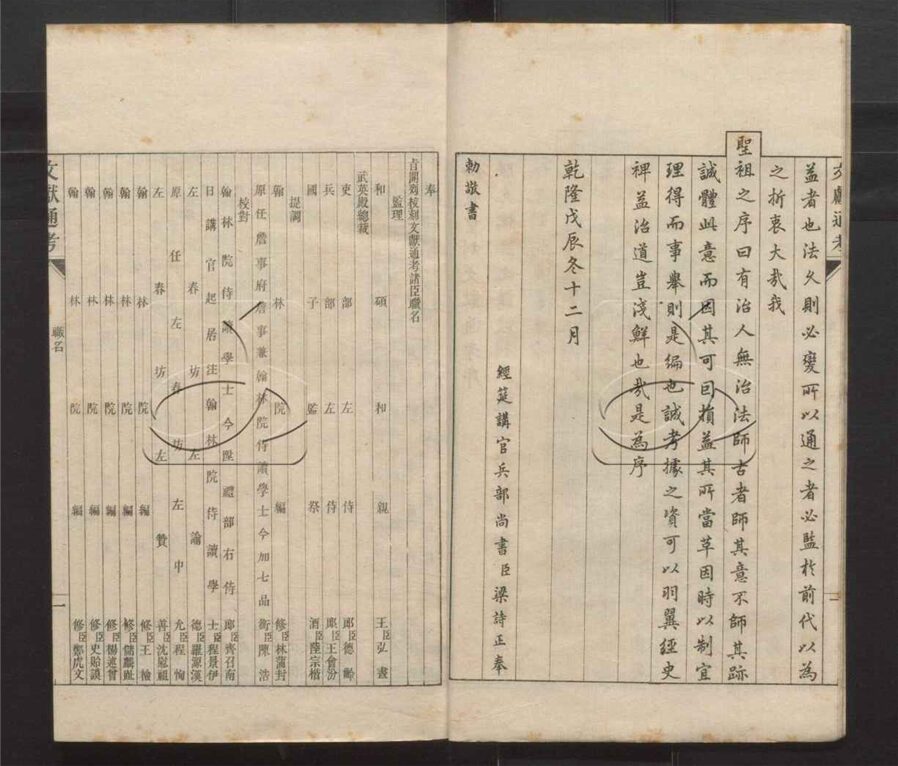 文獻通考
益者也法久則必變所以通之者必監於前代以為
之折衷大哉我
聖祖之序曰有治人無治法師古者師其意不師其跡
誠體此意而因其可因損益其所當革因時以制宜
理得而事舉則是編也誠考據之資可以羽翼經史
裨益治道豈淺鮮也哉是為序
乾隆戊辰冬十二月
經筵講官兵部尚書臣梁詩正奉
勅敬書
奉
旨開列校刻文獻通考諸臣職名
監理
和碩和親王臣弘晝
武英殿總裁
吏部左侍郎臣德齡
兵部左侍郎臣王會汾
國子監祭酒臣陸宗楷
提調
翰林院編修臣林蒲封
原任詹事府詹事兼翰林院侍讀學士今加七品銜臣陳浩
校對
翰林院侍讀學士今陞禮部右侍郎臣齊召南
日講官起居注翰林院侍讀學士臣程景伊
左春坊左諭德臣羅源漢
原任左春坊左中允臣程恂
左春坊左贊善臣沈慰祖
翰林院編修臣王檢
翰林院編修臣儲麟趾
翰林院編修臣楊述曾
翰林院編修臣史貽謨
翰林院編修臣鄭虎文
文獻通考
職名
一